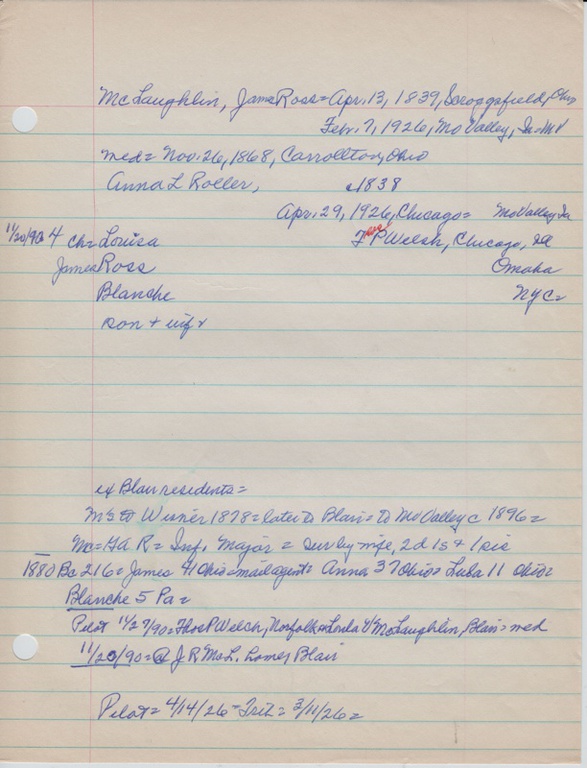 McLaughlin, James Ross = Apr. 13, 1839, Scroggsfield, Ohio
Feb. 7, 1926, Mo Valley, Ia = MV
med = Nov. 26, 1868, Carrollton, Ohio
Anna L Roller, c1838
Apr. 29, 1926, Chicago = Mo Valley Ia
11/20/90 4 ch = Louisa T P Welsh, Chicago, Ill
James Ross Omaha
Blanche NYC =
son + wife
ex Blair residents =
1878 = later to Blair = to Mo Valley c 1896 =
GAR = Inf. Major = sur by wife, 2 ds + 1 sis
1880 Bc 216 = James 41 Ohio = mail agent = Anna 37 Ohio = Lula 11 Ohio =
Blanche 5 Pa =
Pilot 11/27/90 = Thos P Welch, Norfolk + Loula V McLaughlin, Blair = med
11/20/90 = @ J R McL. home, Blair
Pilot = 4/14/26 = Trib = 3/11/26 =